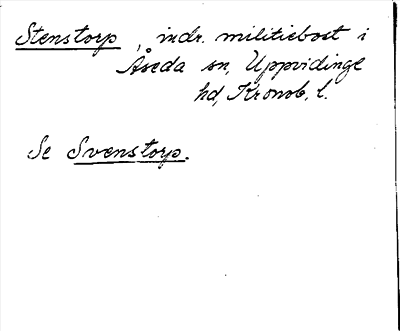 Stenstorp, indr. militiebost i
Åseda sn, Uppvidinge
hd, Kronob. l.
Se Svenstorp.